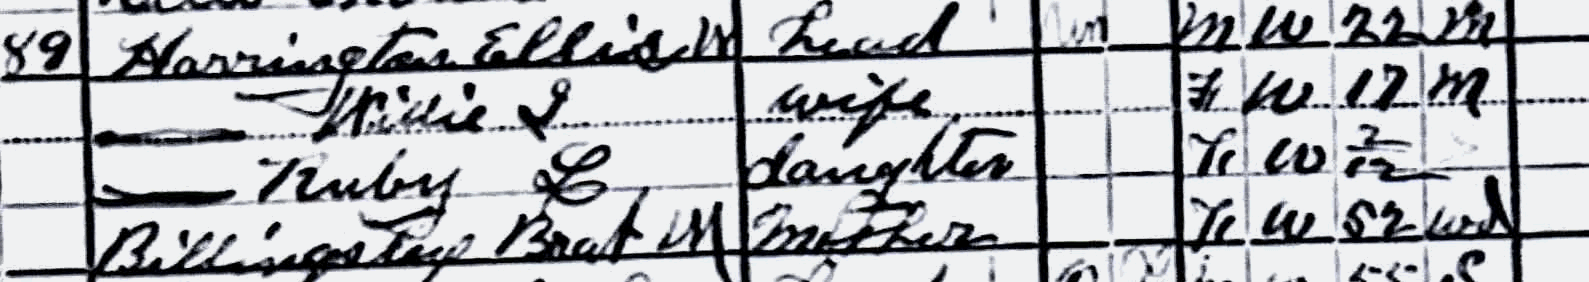 89 Harrington Ellis W head M W 22 M
Willie I wife F W 17 M
Ruby L daughter F W 2/12
Billingsley M Mother F W 52 wd